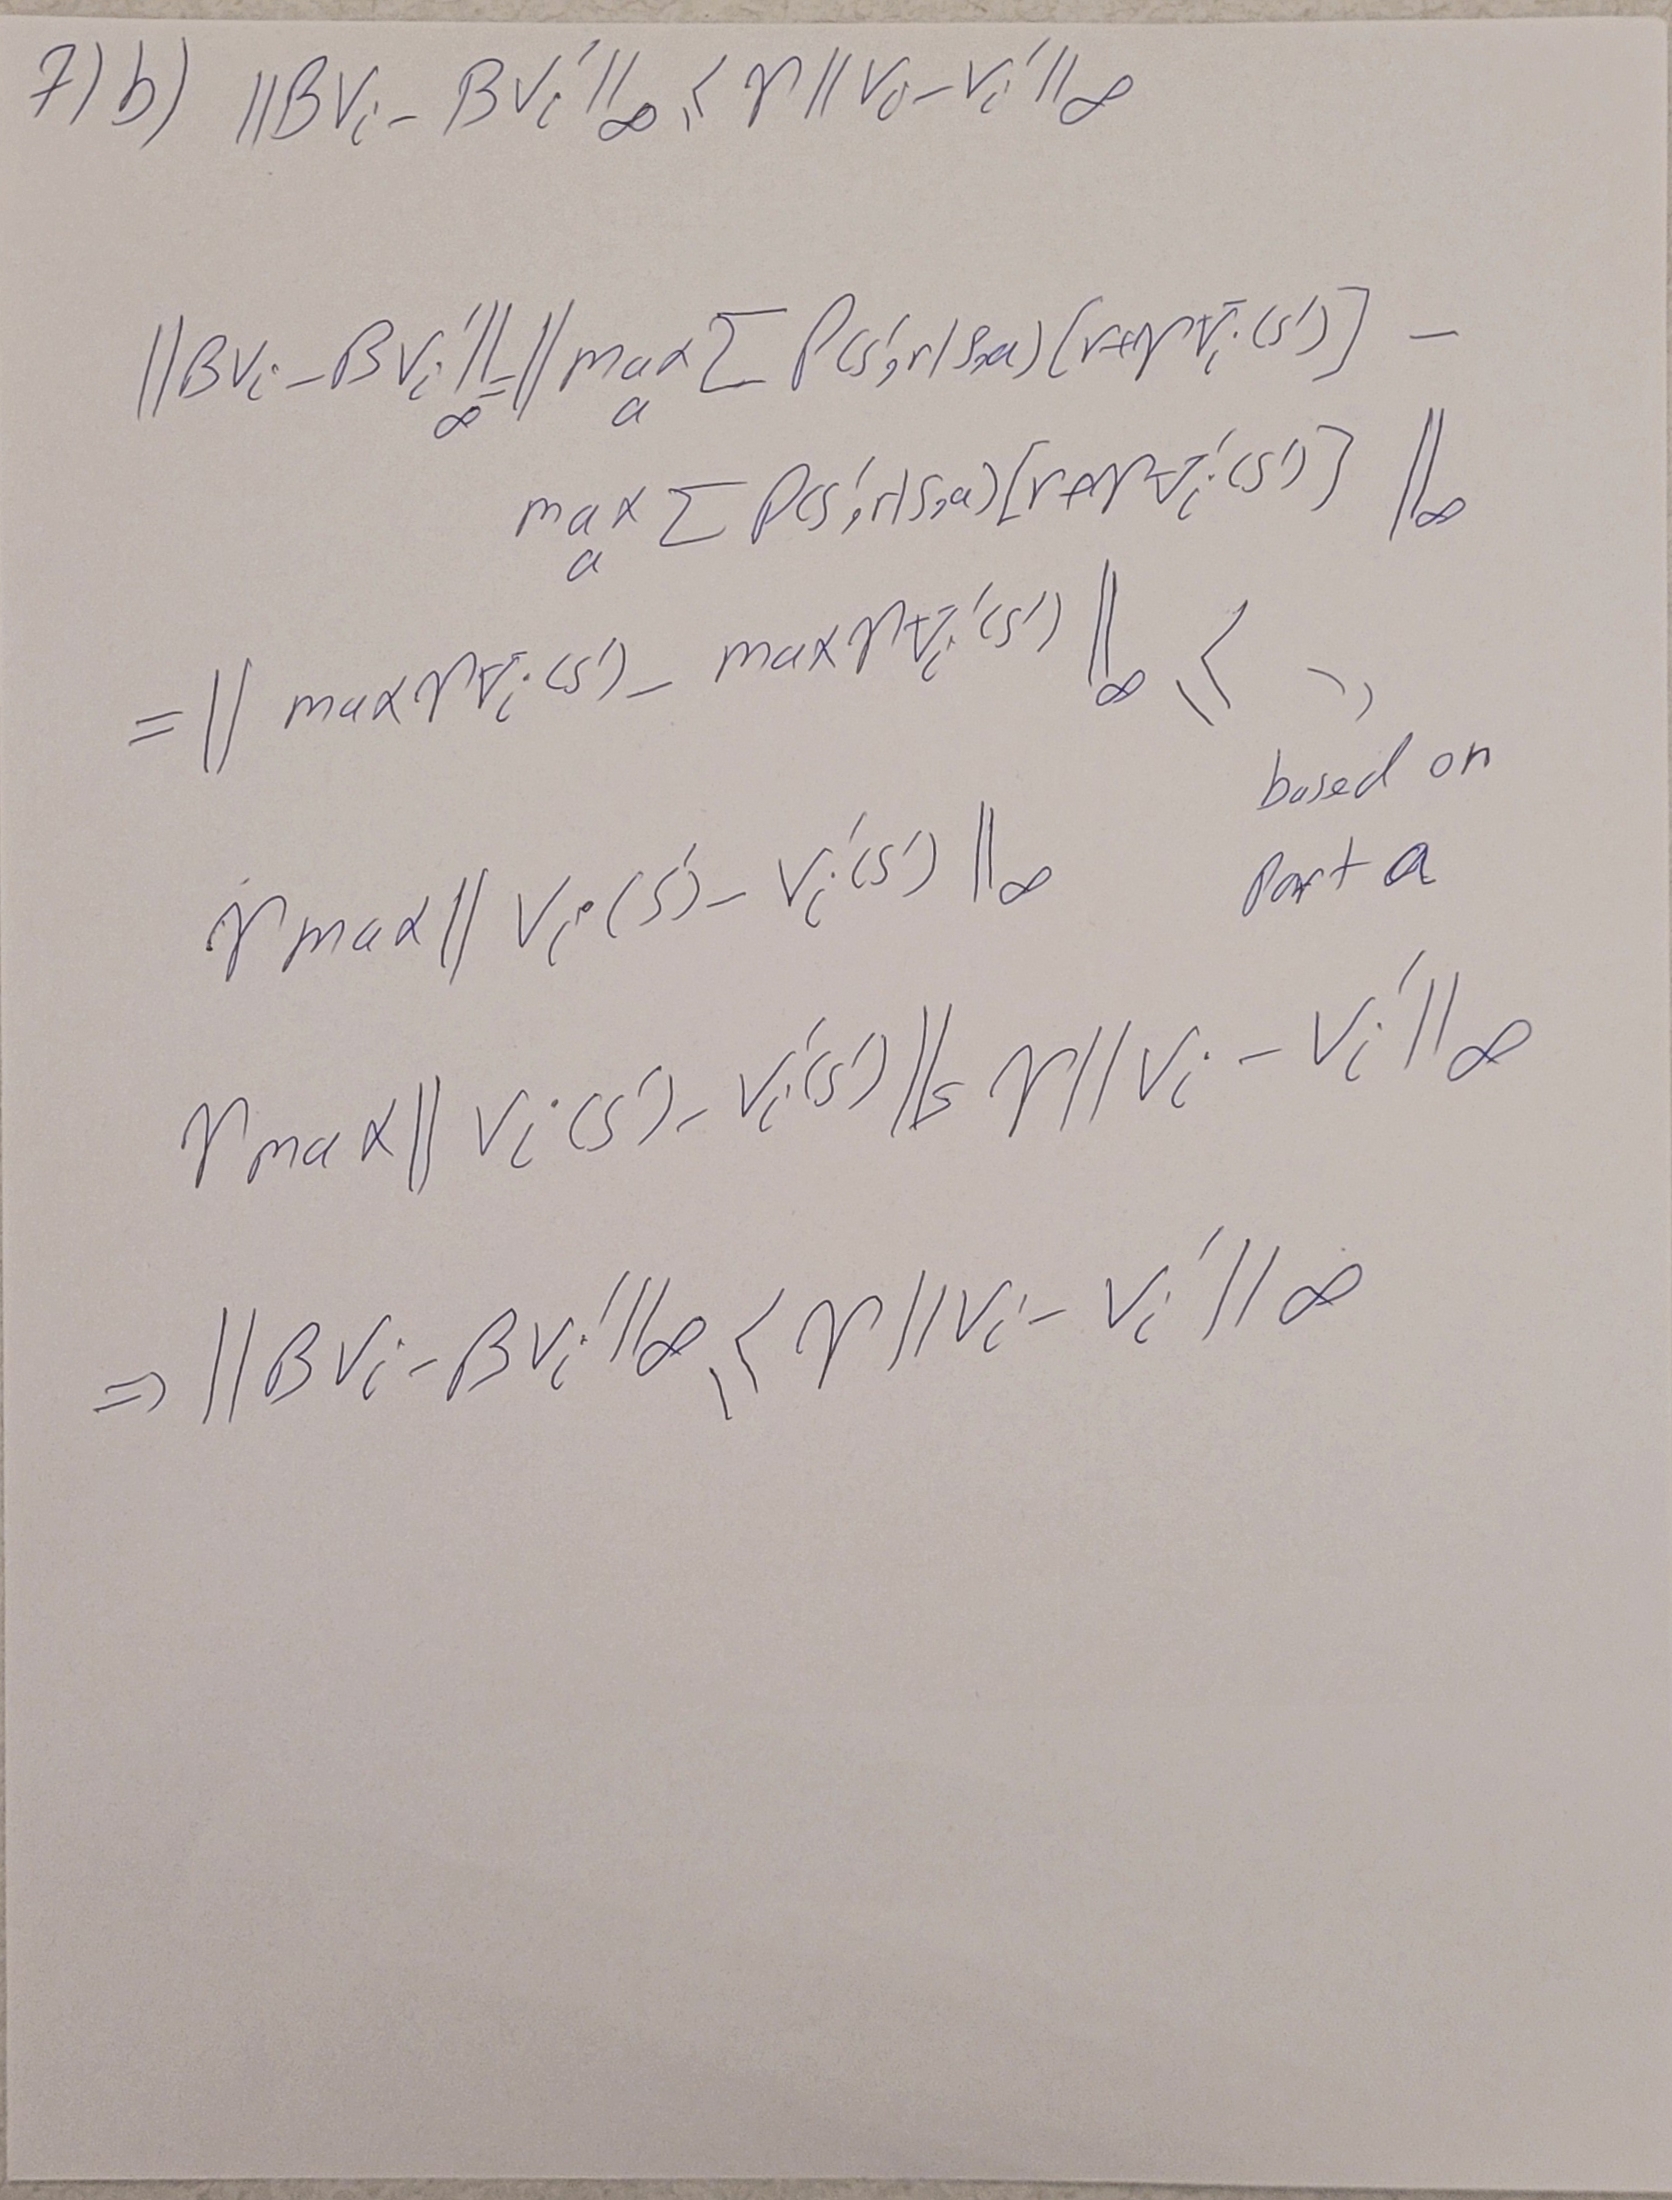 7) b) ||BVi - BVi'||∞ ≤ γ||Vi - Vi'||∞
||BVi - BVi'||∞ = || max_a Σ P(s',r|s,a)[r+γVi(s')] -
max_a Σ P(s',r|s,a)[r+γVi'(s')] ||∞
= || max γVi(s') - max γVi'(s') ||∞ ≤ ,,
based on
γ max || Vi(s') - Vi'(s') ||∞
Part a
γ max || Vi(s') - Vi'(s') || = γ||Vi - Vi'||∞
⇒ ||BVi - BVi'||∞ ≤ γ||Vi - Vi'||∞